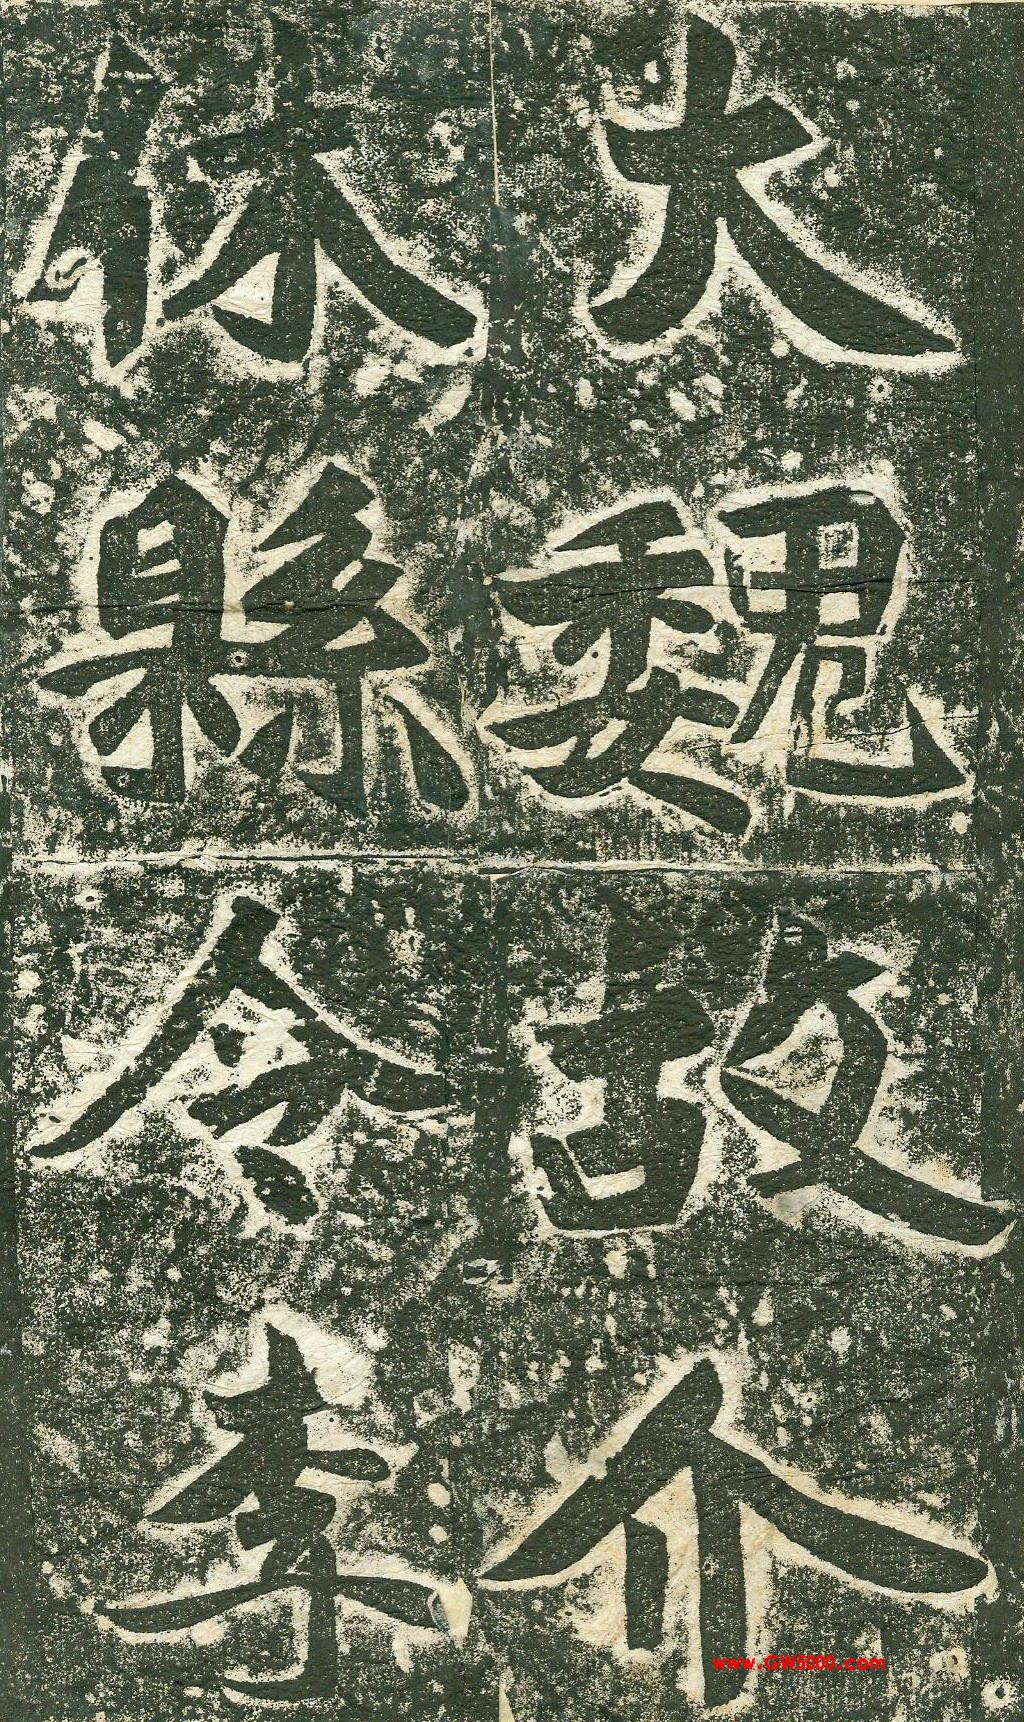 大魏故介
休縣令李
www.GW5000.com